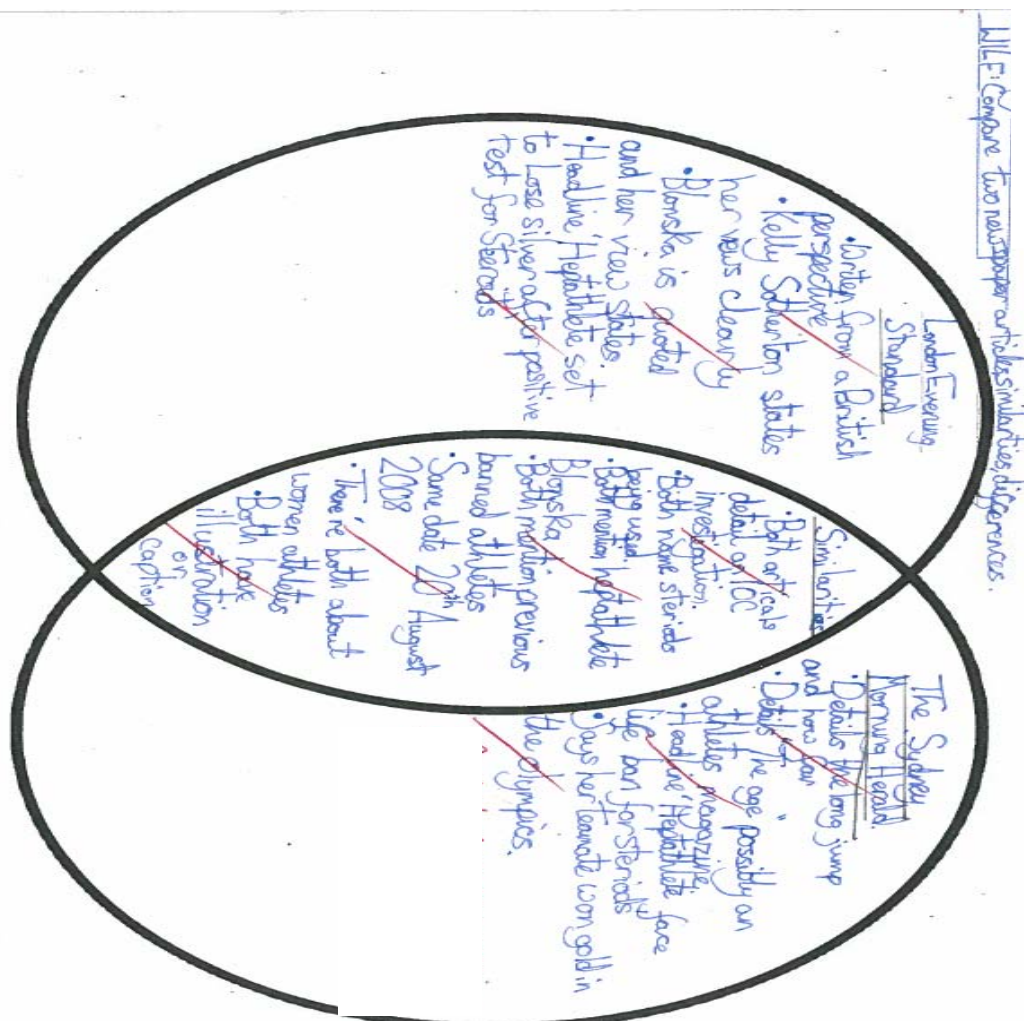 WILF: Compare two newspaper articles, similarties, differences.
London Evening
Standard
• Written from a British
perspective
• Kelly Sotherton states
her views clearly
• Blonska is quoted
and her view states.
• Headline 'Heptathlete set
to Lose silver after positive
test for Steroids
Similarities
• Both articals
detail an IOC
investigation.
• Both name steriods
being used
• Both mention heptathlete
Blonska
• Both mention previous
banned athletes
• Same date 20th August
2008
• There're both about
women athletes
• Both have
illustration
or
caption
The Sydney
Morning Herald.
• Details the long jump
and how far
• Details "The age" possibly an
athletes magazine
• Headline 'Heptathlete face
life ban for steriods
• Says her teamate won gold in
the olympics.